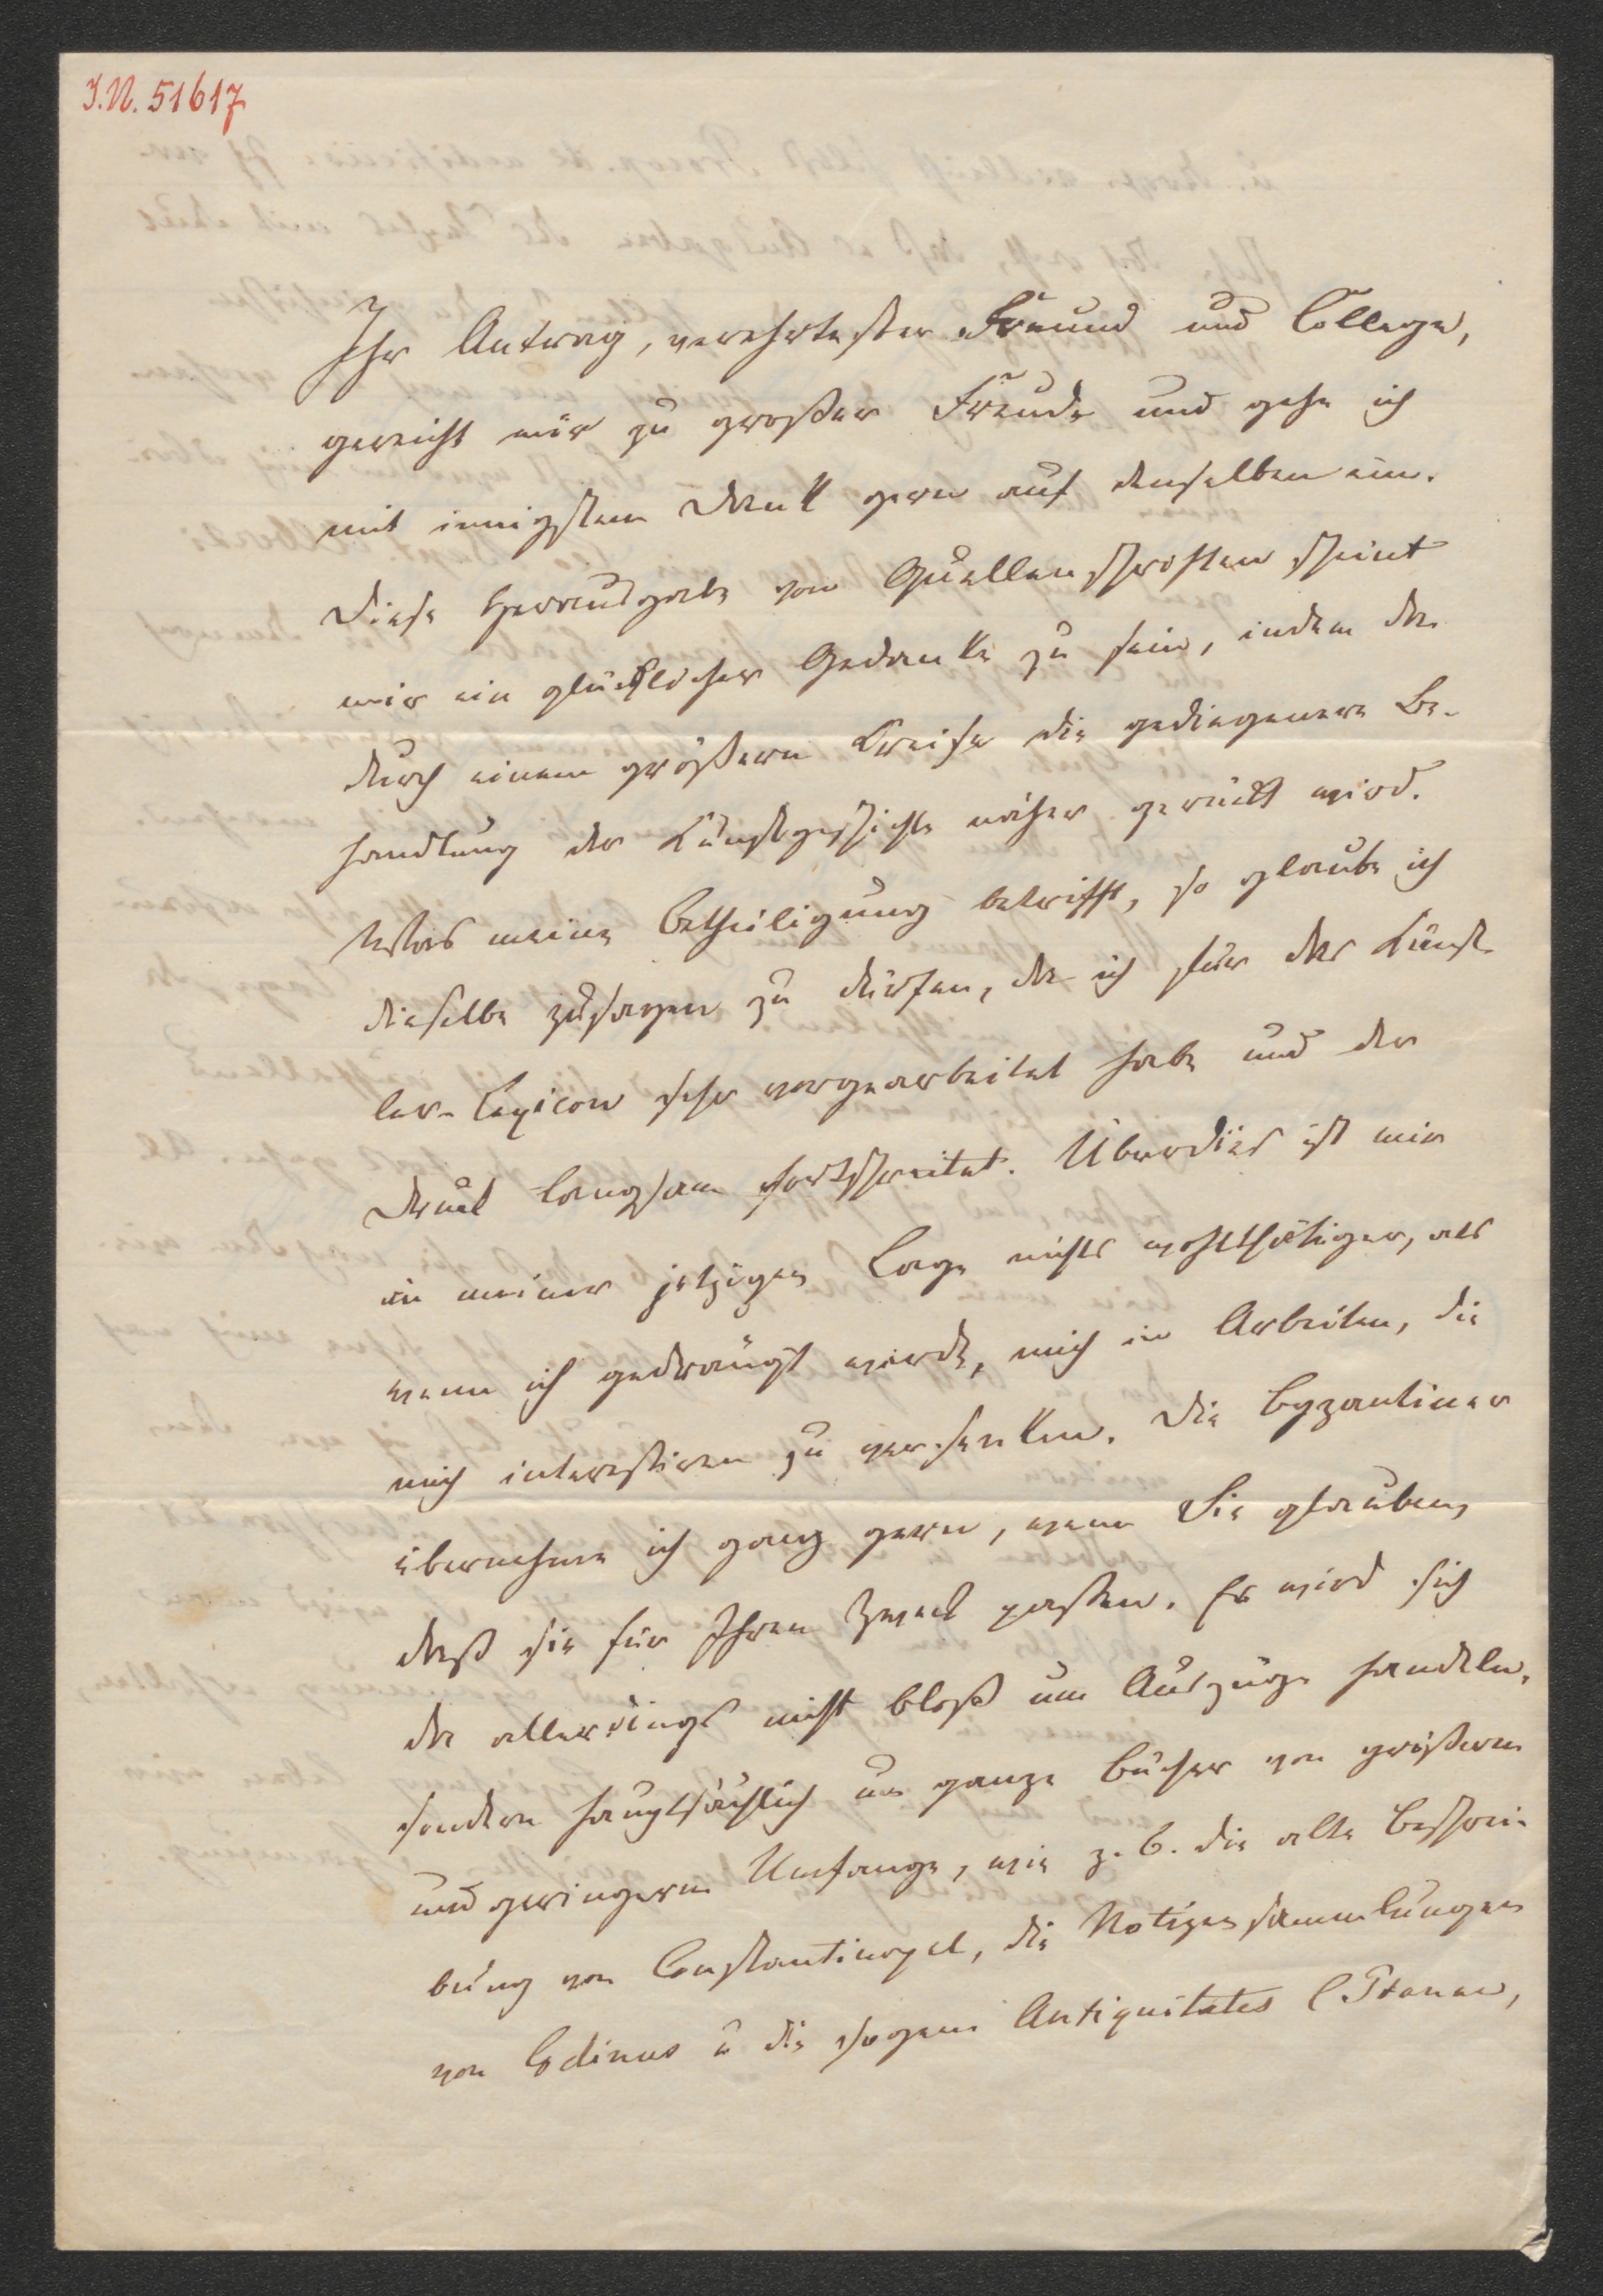 I.N. 51617
Ihr Antrag, verehrtester Freund und College,
gereicht mir zu großer Freude und gehe ich
mit innigstem Dank gern auf denselben ein.
Diese Herausgabe von Quellenschriften scheint
mir ein glücklicher Gedanke zu sein, indem da-
durch einem größern Kreise die gediegenere Be-
handlung der Kunstgeschichte näher gerückt wird.
Was meine Betheiligung betrifft, so glaube ich
dieselbe zusagen zu dürfen, da ich für das Künst-
ler-Lexicon sehr vorgearbeitet habe und der
Druck langsam fortschreitet. Überdies ist mir
in meiner jetzigen Lage nichts wohlthätiger, als
wenn ich gedrängt werde, mich in Arbeiten, die
mich interessiren zu versenken. Die Byzantiner
übernehme ich ganz gern, wenn Sie glauben,
daß sie für Ihren Zweck passen. Es wird sich
da allerdings nicht bloß um Auszüge handeln,
sondern hauptsächlich um ganze Bücher von größerem
und geringerem Umfange, wie z. B. die alte Beschrei-
bung von Constantinopel, die Notizensammlungen
von Codinus u die sogen. Antiquitates CPtanae,